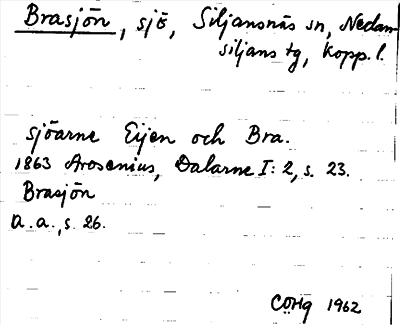 Brasjön, sjö, Siljansnäs sn, Nedan-
siljans tg, Kopp. l.
sjöarne Eijen och Bra.
1863 Arosenius, Dalarne I: 2, s. 23.
Brasjön
a. a., s. 26.
COHg 1962